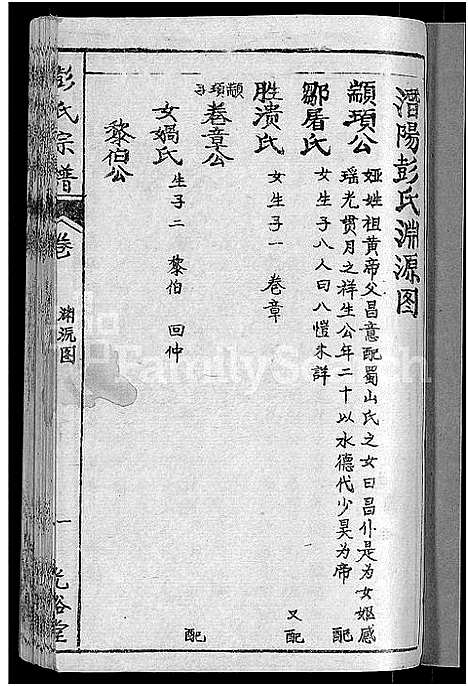 潛陽彭氏淵源图
顓頊公 姬姓祖黄帝父昌意配蜀山氏之女曰昌仆是为女姬感
瑶光贯月之祥生公年二十以水德代少昊为帝 配
鄒屠氏 女生子八人曰八愷未詳 又配
胜渍氏 女生子一 卷章
顓頊子 卷章公 配
女媧氏 生子二 黎伯 回仲
黎伯公
彭氏宗普 卷 渊沅图 一 光裕堂
FamilySearch